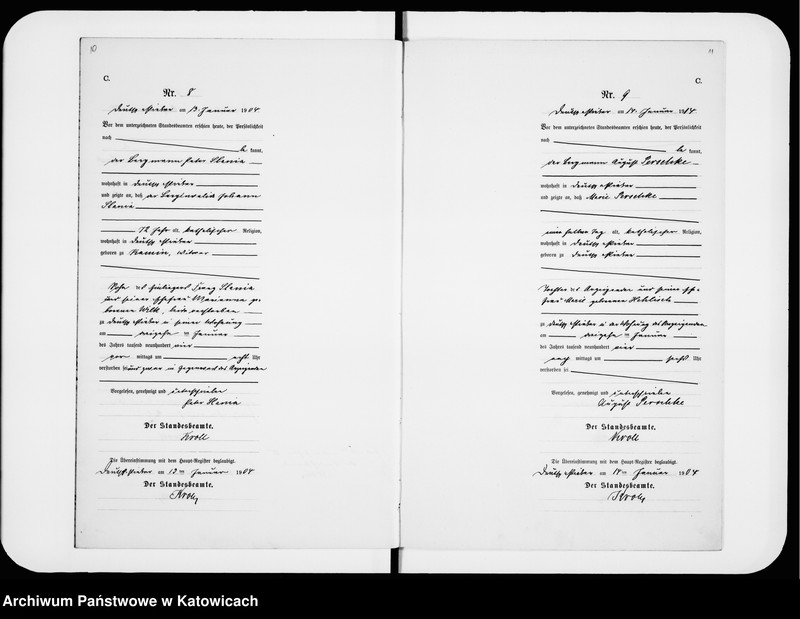 10
C.
Nr. 8
Deutsch Piekar am 13. Januar 1904
Vor dem unterzeichneten Standesbeamten erschien heute, der Persönlichkeit
nach
be kannt,
der Bergmann Peter Slania
wohnhaft in Deutsch Piekar
und zeigte an, daß der Johann
Slania
72 Jahr alt, katholischer Religion,
wohnhaft in Deutsch Piekar
geboren zu Kamin, Witwer
Sohn des
und seiner Ehefrau Marianna ge
borenen Wilk, beide verstorben
zu Deutsch Piekar in seiner Wohnung
am Januar
des Jahres tausend neunhundert vier
vor mittags um acht Uhr
verstorben sei und zwar in Gegenwart des Anzeigenden
Vorgelesen, genehmigt und unterschrieben
Peter Slania
Der Standesbeamte.
Kroll
Die Übereinstimmung mit dem Haupt-Register beglaubigt.
Deutsch Piekar am Januar 1904
Der Standesbeamte.
Kroll
11
C.
Nr. 9
Deutsch Piekar am 14. Januar 1904
Vor dem unterzeichneten Standesbeamten erschien heute, der Persönlichkeit
nach
be kannt,
der Bergmann August
wohnhaft in Deutsch Piekar
und zeigte an, daß Marie
einen halben Tag alt, katholischer Religion,
wohnhaft in Deutsch Piekar
geboren zu Deutsch Piekar
Tochter des Anzeigenden und seiner Ehe
frau Marie geborene
zu Deutsch Piekar in der Wohnung des Anzeigenden
am Januar
des Jahres tausend neunhundert vier
nach mittags um sechs Uhr
verstorben sei
Vorgelesen, genehmigt und unterschrieben
August
Der Standesbeamte.
Kroll
Die Übereinstimmung mit dem Haupt-Register beglaubigt.
Deutsch Piekar am 14ten Januar 1904
Der Standesbeamte.
Kroll
Archiwum Państwowe w Katowicach